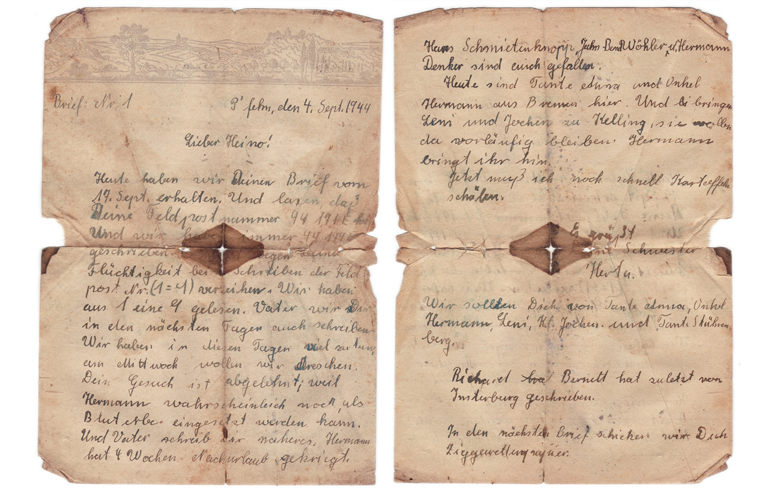 Brief: Nr. 1
P'fehn, den 4. Sept. 1944
Lieber Heino!
Heute haben wir Deinen Brief vom
17. Sept. erhalten. Und lasen daß
Deine Feldpostnummer
Und wir
geschrieben.
Flüchtigkeit bei Schreiben der Feld
post Nr. (1=1) verzeihen. Wir haben
aus 1 eine 9 gelesen. Vater wir Dir
in den nächsten Tagen auch schreiben
Wir haben in diesen Tagen viel zu tun,
am Mittwoch wollen wir dreschen.
Dein Gesuch ist abgelehnt, weil
Hermann wahrscheinlich noch als
eingesetzt werden kann.
Und Vater schrieb Dir näheres. Hermann
hat 4 Wochen Nachurlaub gekriegt.
Hans Schmietenknopp, Wöhler u. Hermann
Denker sind auch gefallen.
Heute sind Tante Edma und Onkel
Hermann aus Bremen hier. Und bringen
Leni und Jochen zu Helling, sie wollen
da vorläufig bleiben. Hermann
bringt ihr hin.
Jetzt muß ich noch schnell Kartoffeln
schälen.
Schwester
Herta.
Wir sollen Dich von Tante Edma, Onkel
Hermann, Leni, Kl. Jochen und Tante
berg.
Richard Berndt hat zuletzt von
Insterburg geschrieben.
In den nächsten Brief schicken wir Dich